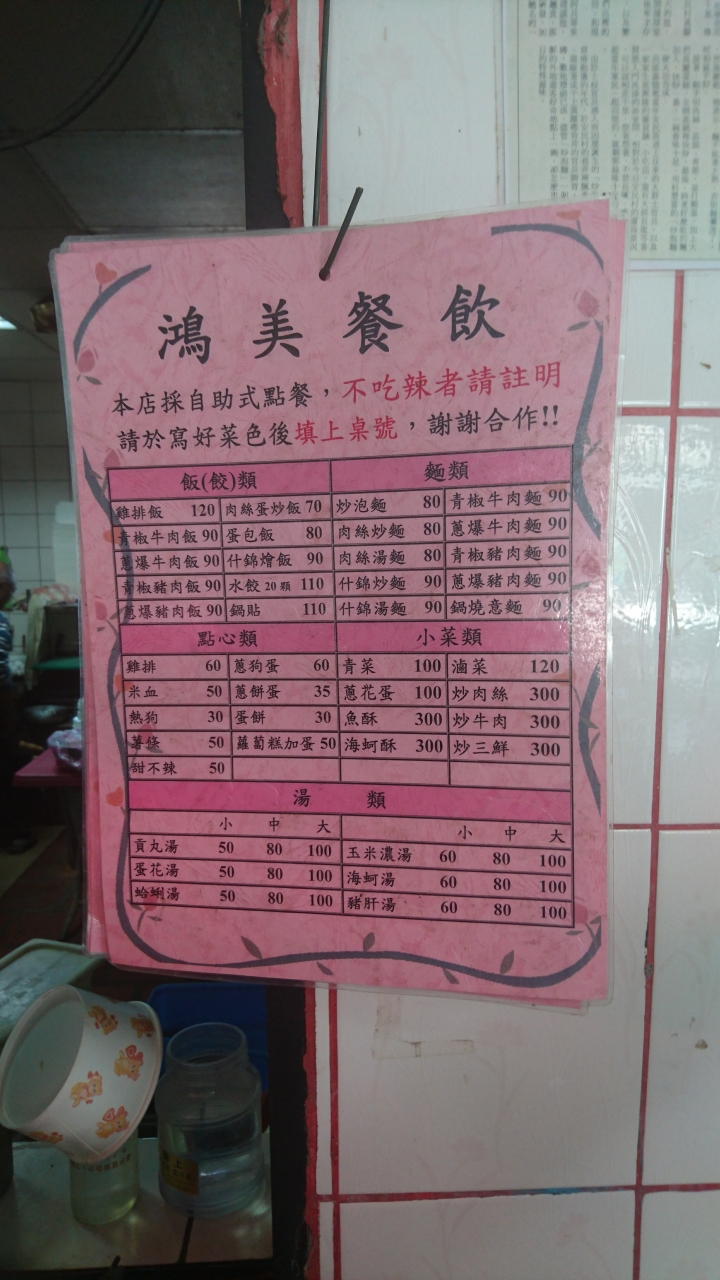 鴻美餐飲
本店採自助式點餐，不吃辣者請註明
請於寫好菜色後填上桌號，謝謝合作!!
飯(餃)類 麵類
雞排飯 120 肉絲蛋炒飯 70 炒泡麵 80 青椒牛肉麵 90
青椒牛肉飯 90 蛋包飯 80 肉絲炒麵 80 蔥爆牛肉麵 90
蔥爆牛肉飯 90 什錦燴飯 90 肉絲湯麵 80 青椒豬肉麵 90
青椒豬肉飯 90 水餃 20 顆 110 什錦炒麵 90 蔥爆豬肉麵 90
蔥爆豬肉飯 90 鍋貼 110 什錦湯麵 90 鍋燒意麵 90
點心類 小菜類
雞排 60 蔥狗蛋 60 青菜 100 滷菜 120
米血 50 蔥餅蛋 35 蔥花蛋 100 炒肉絲 300
熱狗 30 蛋餅 30 魚酥 300 炒牛肉 300
薯條 50 蘿蔔糕加蛋 50 海蚵酥 300 炒三鮮 300
甜不辣 50
湯 類
小 中 大 小 中 大
貢丸湯 50 80 100 玉米濃湯 60 80 100
蛋花湯 50 80 100 海蚵湯 60 80 100
蛤蜊湯 50 80 100 豬肝湯 60 80 100